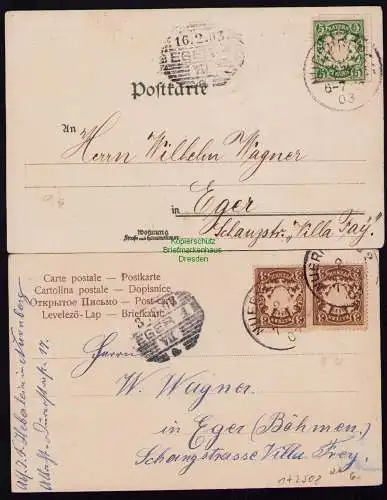 16.2.03
EGER
BAYERN
5
5
6-7
03
Postkarte
An
Herrn Wilhelm Wagner
in Eger
Wohnung
Schanzstr. "Villa Frey".
Kopierschutz
Briefmarkenhaus
Dresden
Carte postale – Postkarte
Cartolina postale – Dopisnice
Открытое Письмо – Post-card
Levelező-Lap – Briefkaart
EGER 1
NUER
NUER
Herrn
W. Wagner,
in Eger (Böhmen)
Schanzstrasse Villa Frey.
in Nürnberg
17.